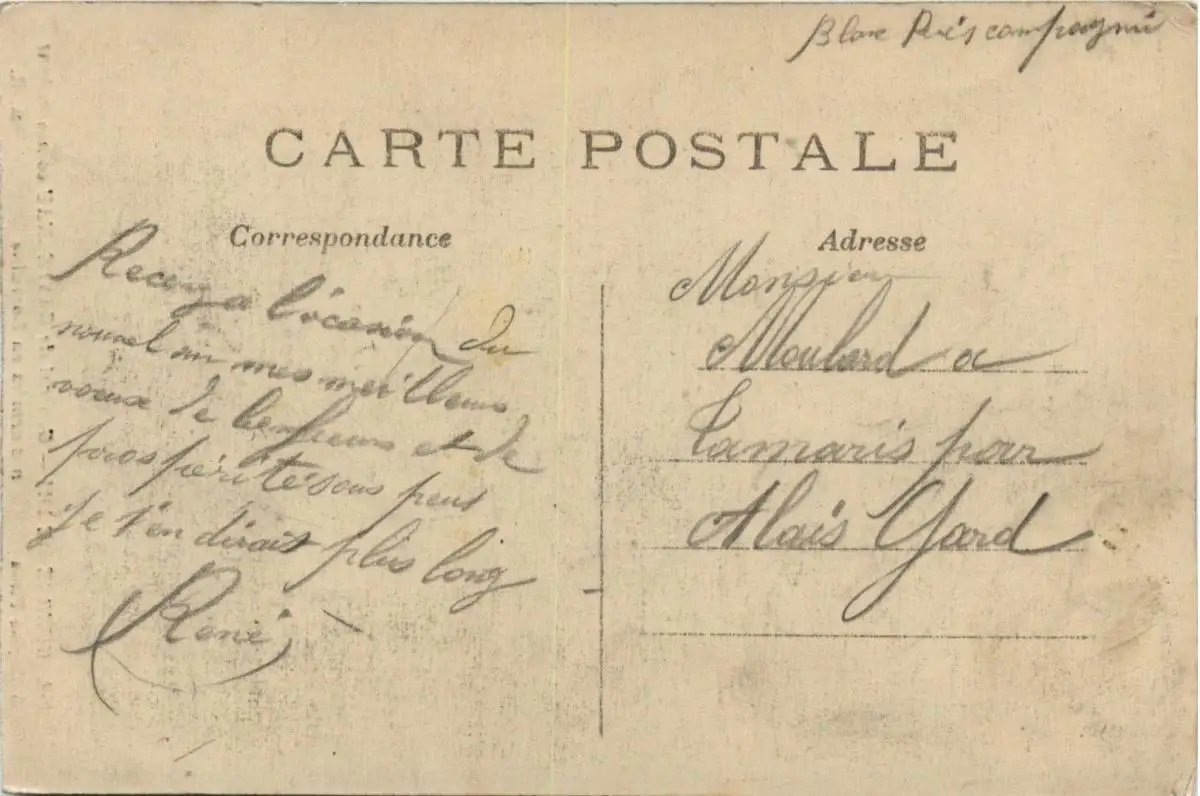 Blanc compagnie
CARTE POSTALE
Correspondance
Recevez a l'ocasion du
nouvel an mes meilleurs
voeux de bonheur et de
prospérité sous peut
je t'en dirait plus long
René
Adresse
Monsieur
Moulard a
Tamaris par
Alais Gard